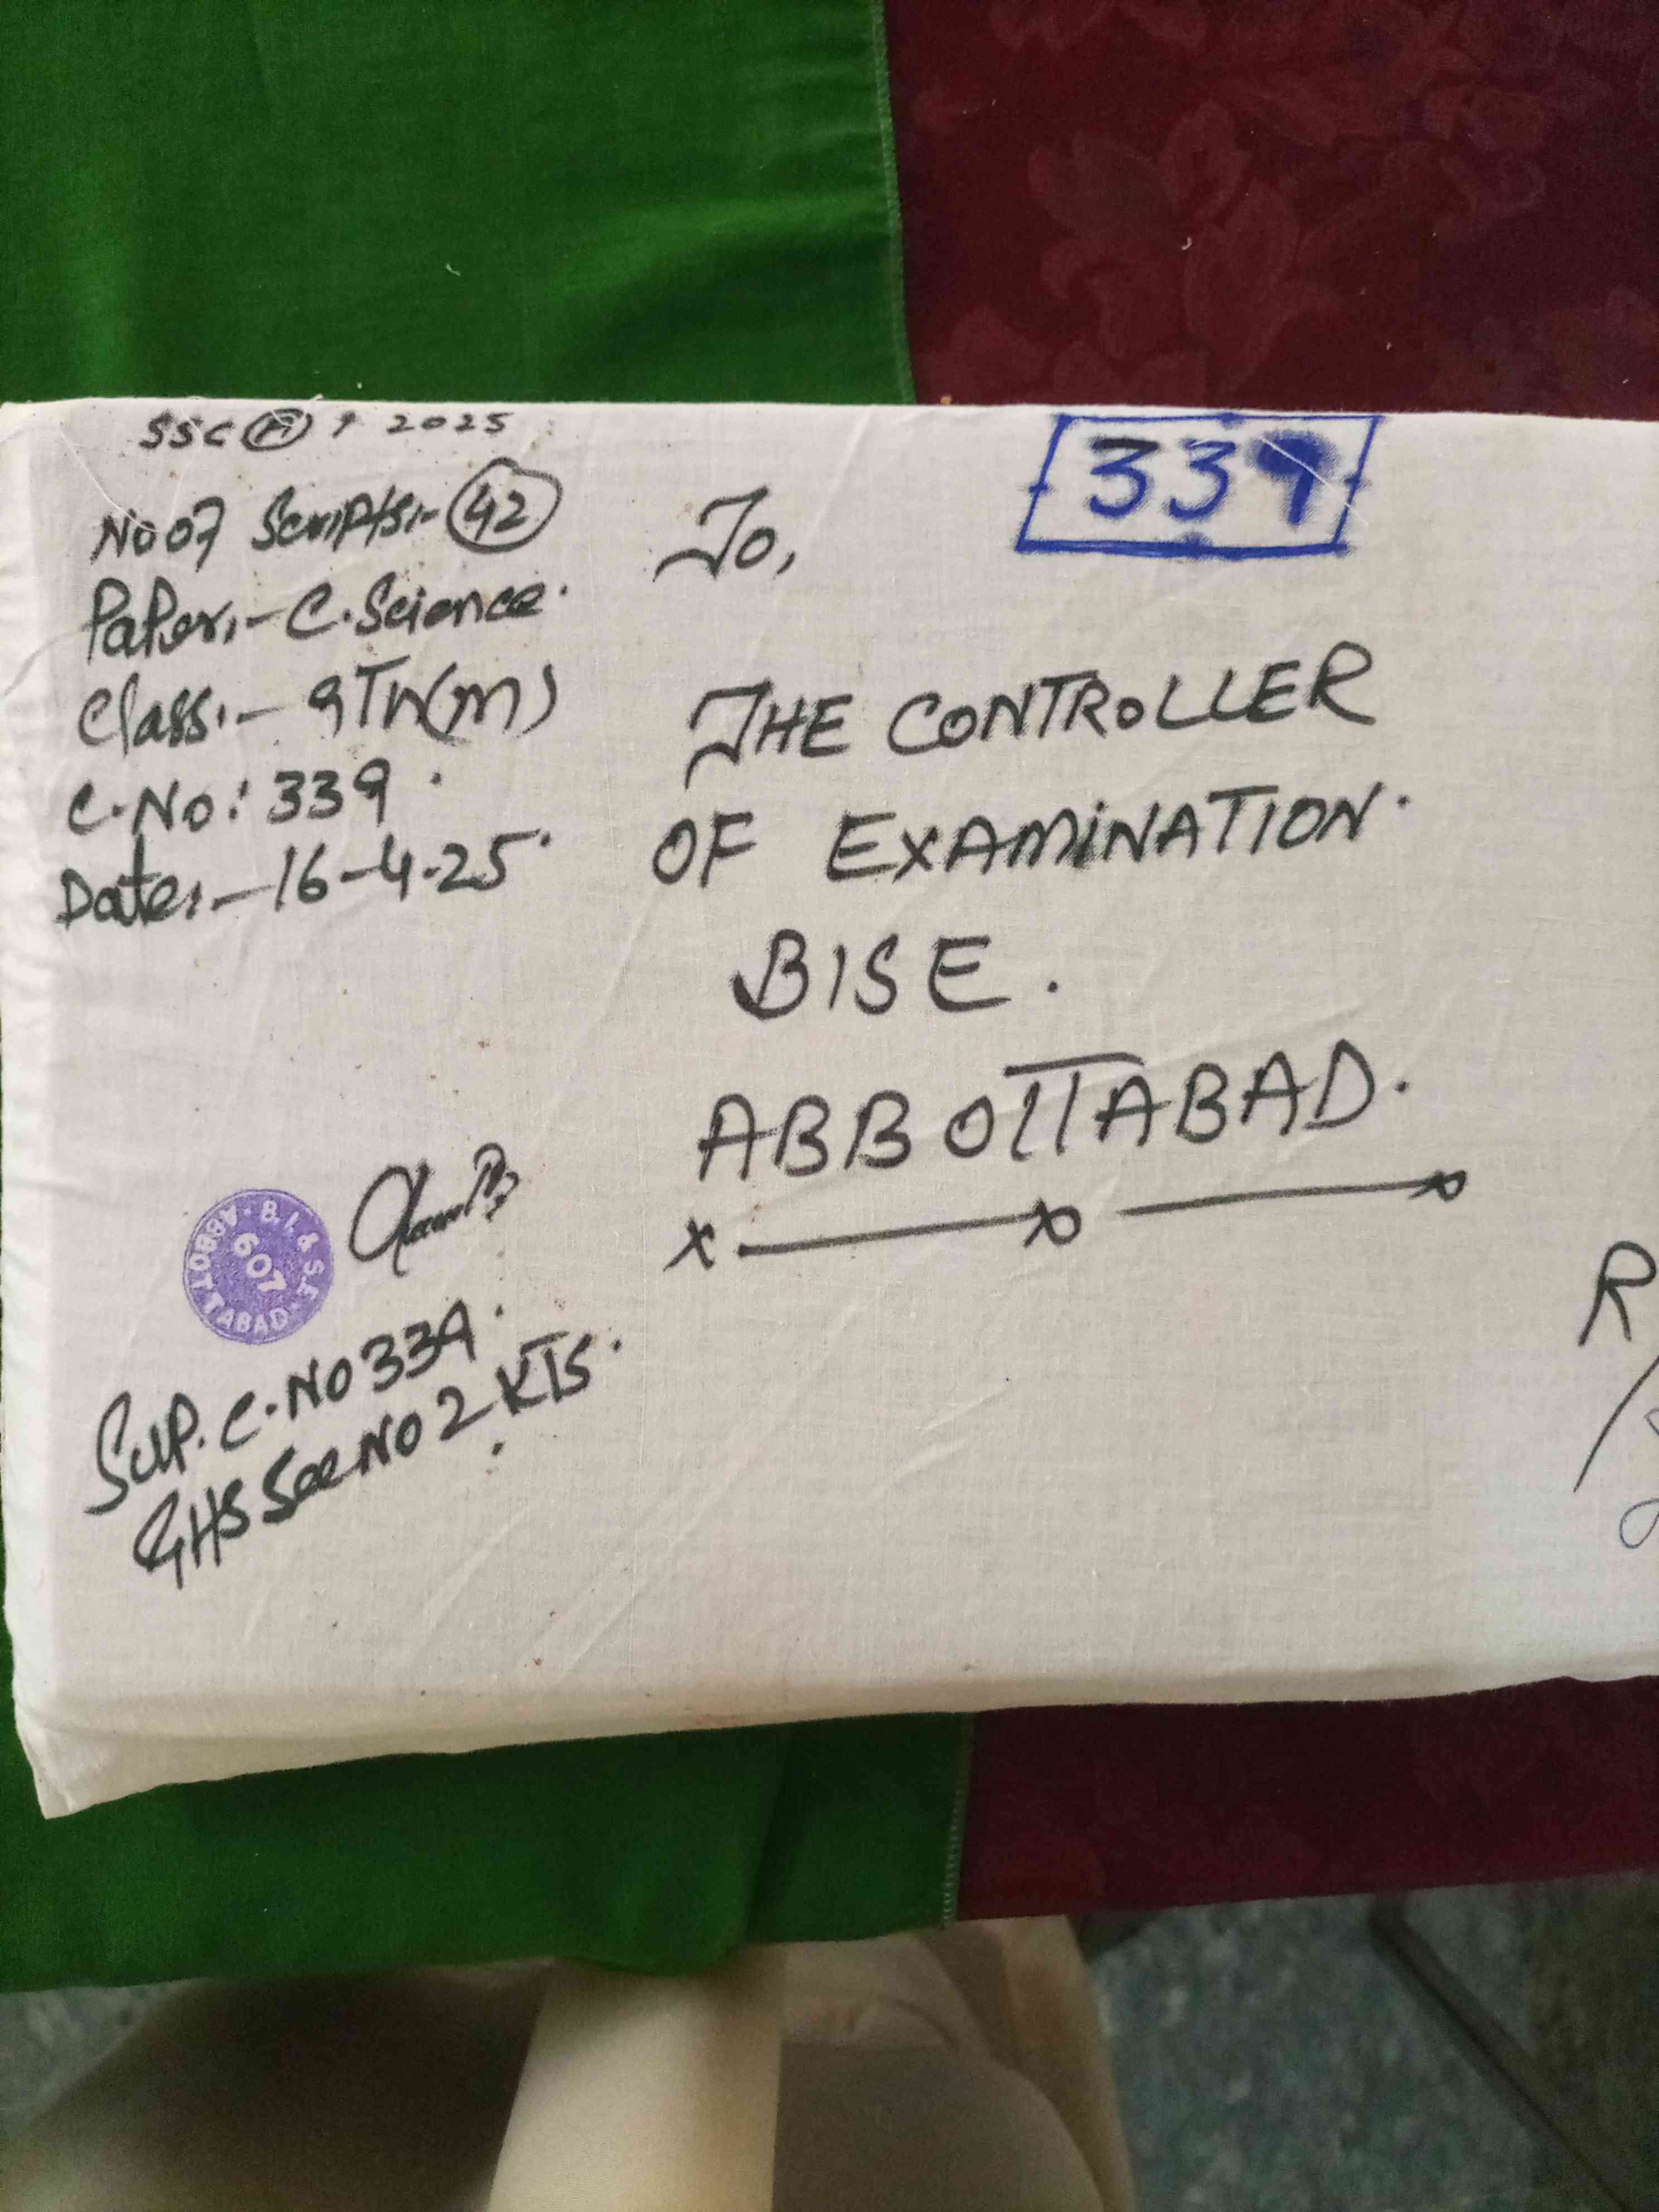 SSC (A) 9 2025
339
No of Scripts:- 42
Paper:- C.Science.
Class:- 9Th(m)
C.No: 339.
Date:- 16-4-25.
To,
THE CONTROLLER
OF EXAMINATION.
BISE.
ABBOTTABAD.
x x x
B.I. & S.E. ABBOTTABAD
607
Sup. C.No 339.
GHSS No 2 KTS.
R